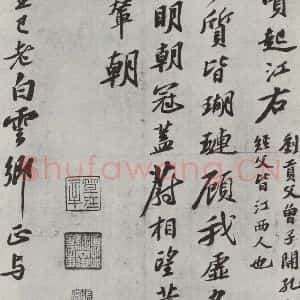 起江右
劉貢父曾子開孔
經父皆江西人也
質皆瑚璉顧我虛
明朝冠盖蔚相望
輦朝
已老白雲鄉正与
shufawang.CN